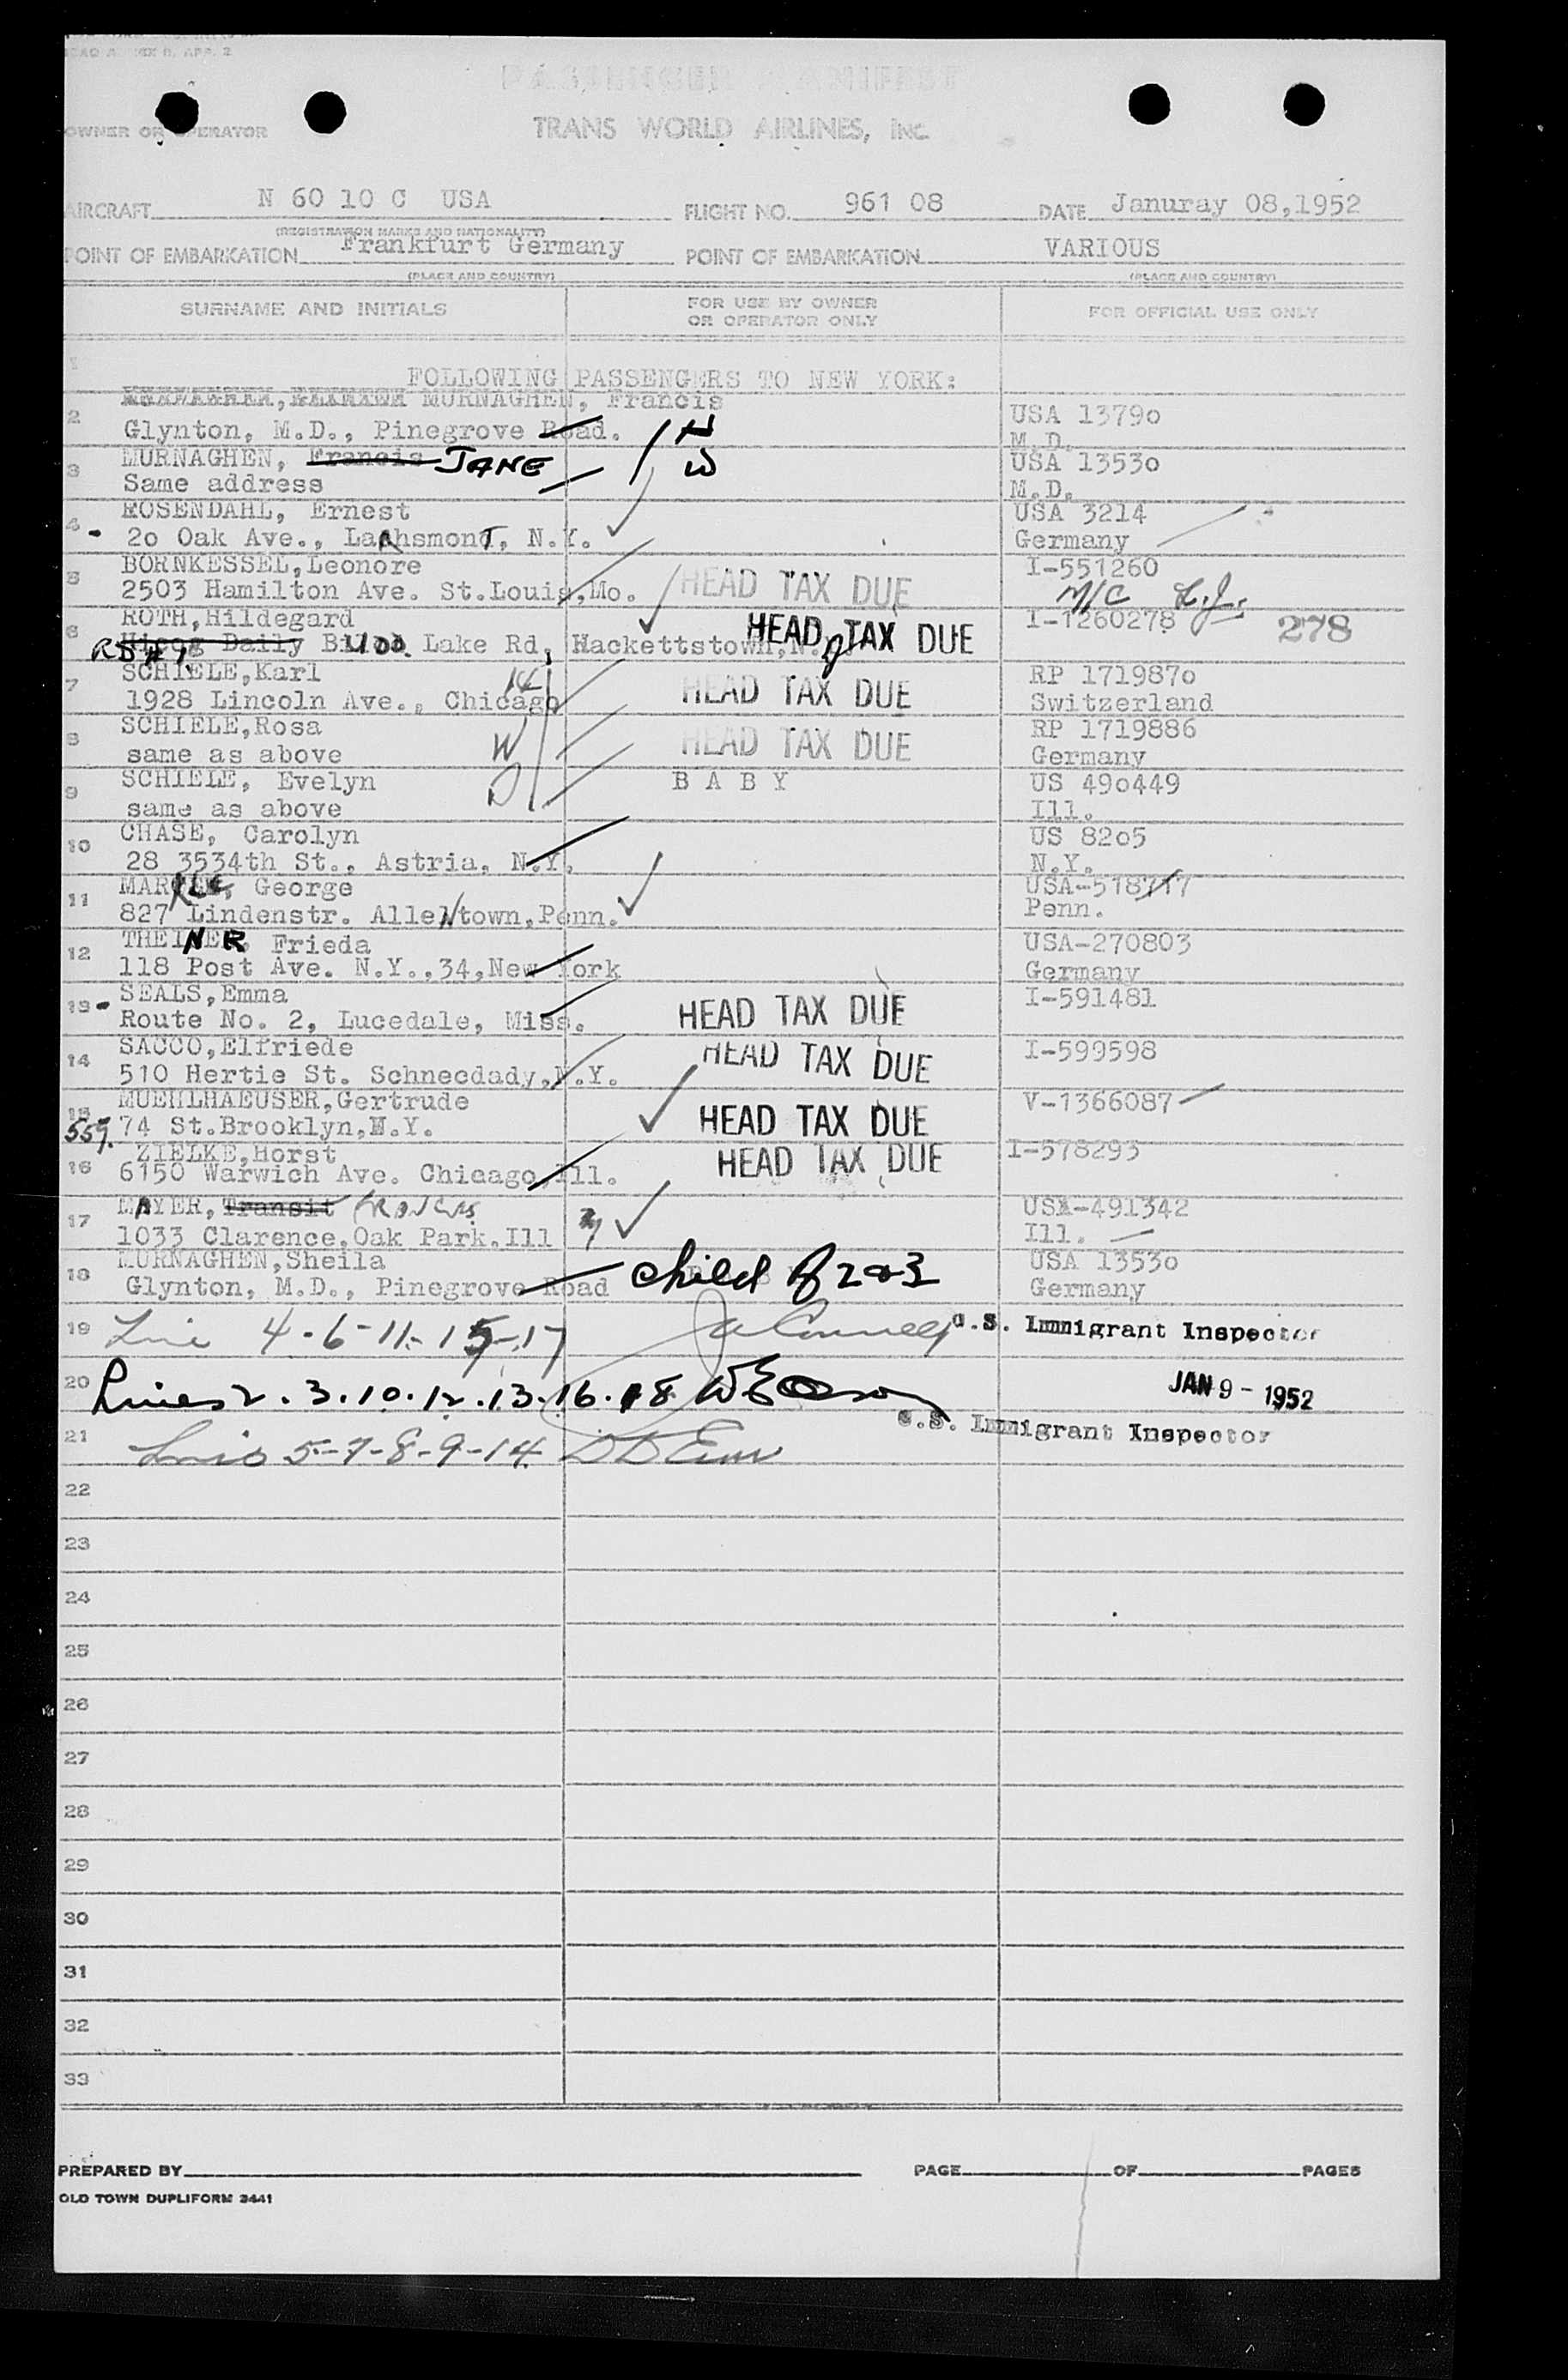 PASSENGER MANIFEST
OWNER OR OPERATOR
TRANS WORLD AIRLINES, Inc.
AIRCRAFT N 60 10 C USA FLIGHT NO. 961 08 DATE Januray 08,1952
(REGISTRATION MARKS AND NATIONALITY)
POINT OF EMBARKATION Frankfurt Germany POINT OF EMBARKATION VARIOUS
(PLACE AND COUNTRY) (PLACE AND COUNTRY)
SURNAME AND INITIALS FOR USE BY OWNER OR OPERATOR ONLY FOR OFFICIAL USE ONLY
1
FOLLOWING PASSENGERS TO NEW YORK:
2 MURNAGHEN, Francis USA 1379o
Glynton, M.D., Pinegrove Road. H M.D.
3 MURNAGHEN, Francis JANE W USA 1353o
Same address M.D.
4 ROSENDAHL, Ernest USA 3214
2o Oak Ave., LaRhsmonT, N.Y. Germany
5 BORNKESSEL,Leonore I-551260
2503 Hamilton Ave. St.Louis,Mo. HEAD TAX DUE M/C
6 ROTH,Hildegard I-1260278 278
Hicog Daily Lake Rd, Hackettstown, HEAD TAX DUE
7 SCHIELE,Karl RP 171987o
1928 Lincoln Ave., Chicago HEAD TAX DUE Switzerland
8 SCHIELE,Rosa RP 1719886
same as above W HEAD TAX DUE Germany
9 SCHIELE, Evelyn D B A B Y US 49o449
same as above Ill.
10 CHASE, Carolyn US 82o5
28 3534th St., Astria, N.Y. N.Y.
11 George
827 Lindenstr. AlleNtown,Penn. Penn.
12 THEINER, Frieda USA-270803
118 Post Ave. N.Y.,34,New York Germany
13 SEALS,Emma I-591481
Route No. 2, Lucedale, Miss. HEAD TAX DUE
14 SACCO,Elfriede I-599598
510 Hertie St. Schnecdady,N.Y. HEAD TAX DUE
15 MUEHLHAEUSER,Gertrude V-1366087
559. 74 St.Brooklyn,N.Y. HEAD TAX DUE
16 ZIELKE,Horst I-578293
6150 Warwich Ave. Chicago,Ill. HEAD TAX DUE
17 MAYER, Transit USA-491342
1033 Clarence,Oak Park,Ill Ill.
18 MURNAGHEN,Sheila child of 2 & 3 USA 1353o
Glynton, M.D., Pinegrove Road Germany
19 Line 4-6-11-15-17 U.S. Immigrant Inspector
20 Lines 2.3.10.12.13.16.18 JAN 9 - 1952
U.S. Immigrant Inspector
21 Lines 5-7-8-9-14
22
23
24
25
26
27
28
29
30
31
32
33
PREPARED BY PAGE OF PAGES
OLD TOWN DUPLIFORM 3441